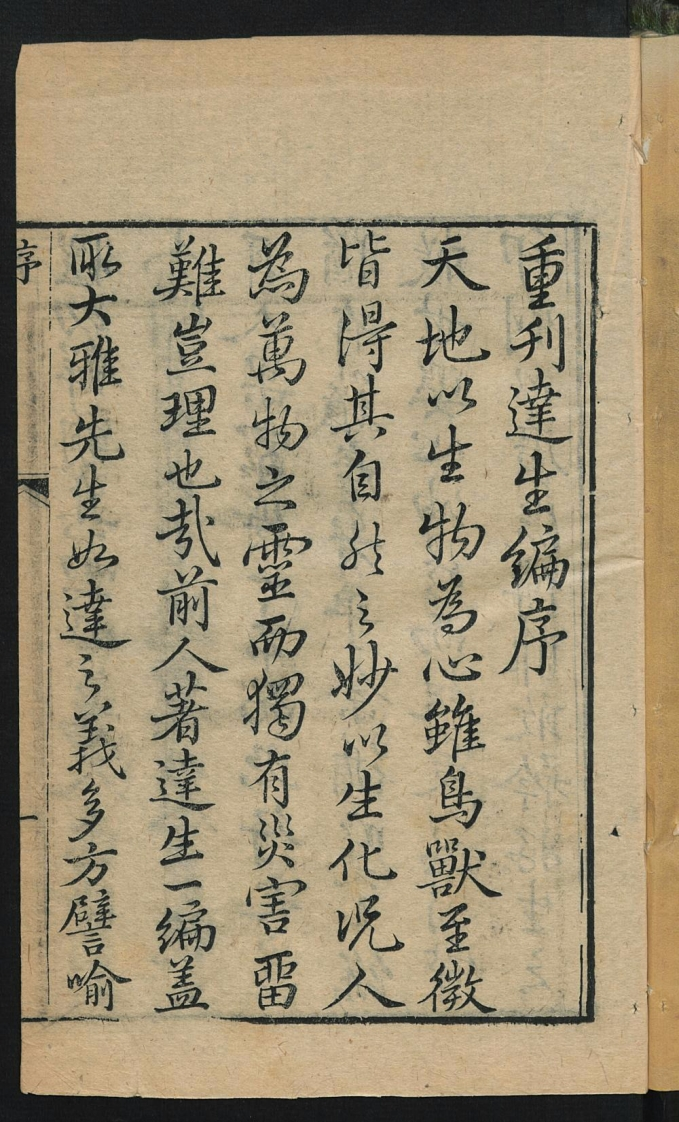 重刊達生編序
天地以生物為心雖鳥獸至微
皆得其自然之妙以生化况人
為萬物之靈而獨有災害畱
難豈理也哉前人著達生一編盖
取大雅先生如達之義多方譬喻
序
一